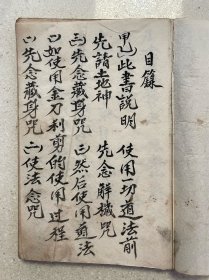 目錄
甲、此書説明
使用一切道法前
先請土地神
先念解穢咒
㈢先念藏身咒
㈣然后使用道法
㈠如使用金刀利剪的使用过程
㈠先念藏身咒
㈡使法念咒